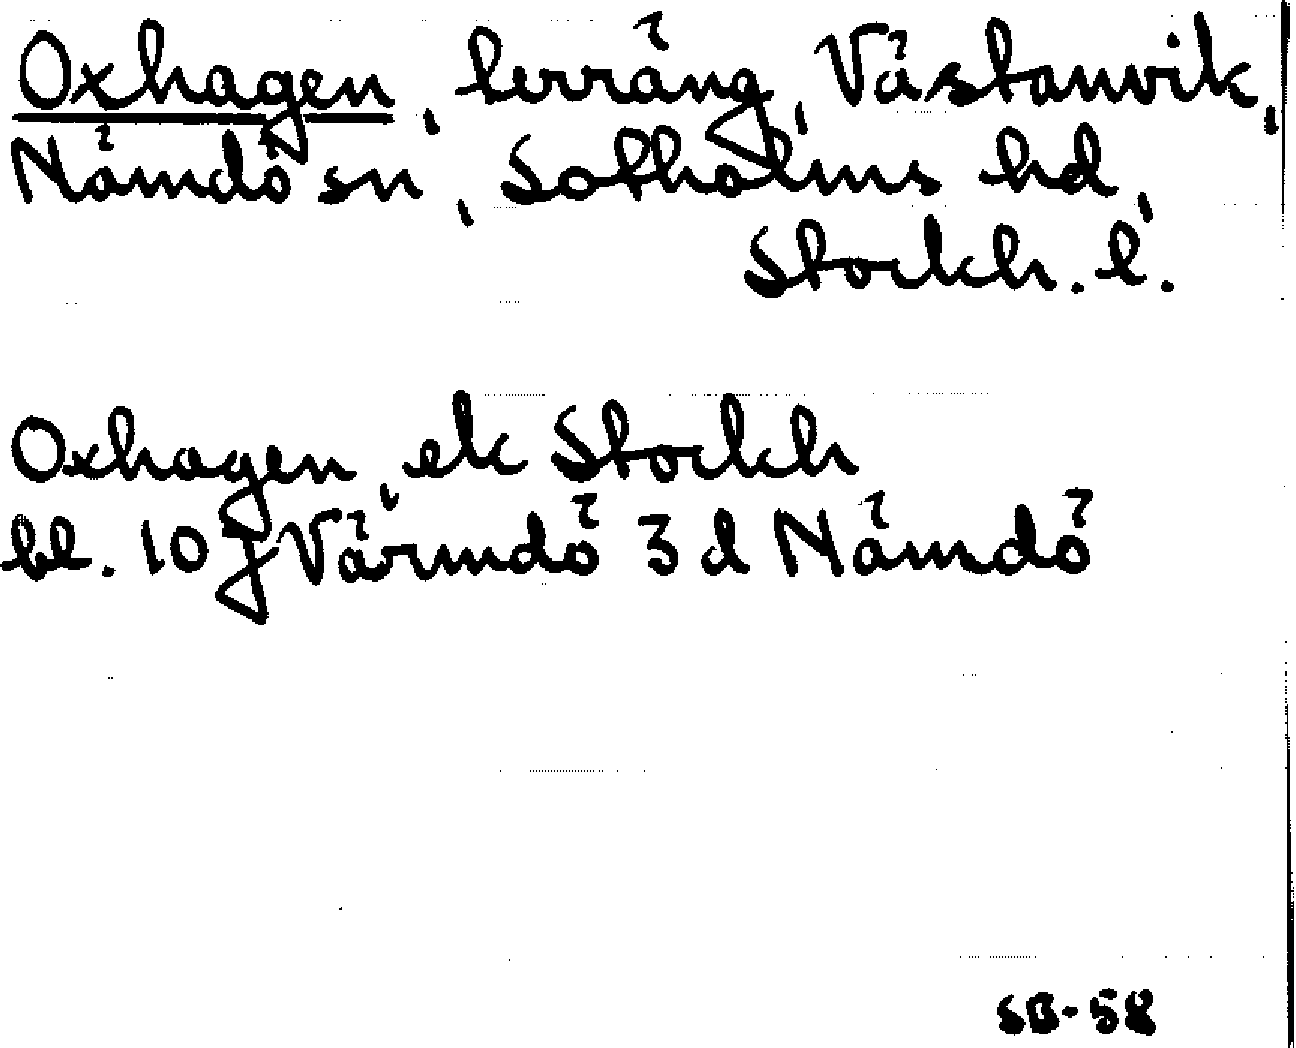 Oxhagen, terräng, Västanvik,
Nämdö sn, Sotholms hd,
Stockh. l.
Oxhagen, ek Stockh
bl. 10 j Värmdö 3 d Nämdö
SB-58